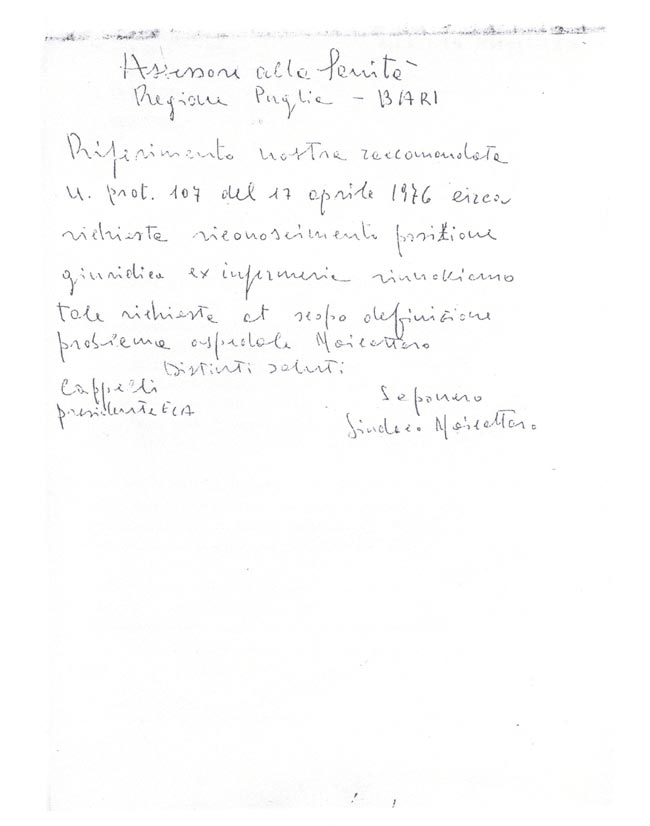 Assessore alla Sanità
Regione Puglia - BARI
Riferimento nostra raccomandata
n. prot. 107 del 17 aprile 1976 circa
richiesta riconoscimento posizione
giuridica ex infermeria rinnoviamo
tale richiesta at scopo definizione
problema ospedale Moscattaro
Distinti saluti
Cappelli
presidente ECA
Saponaro
Sindaco